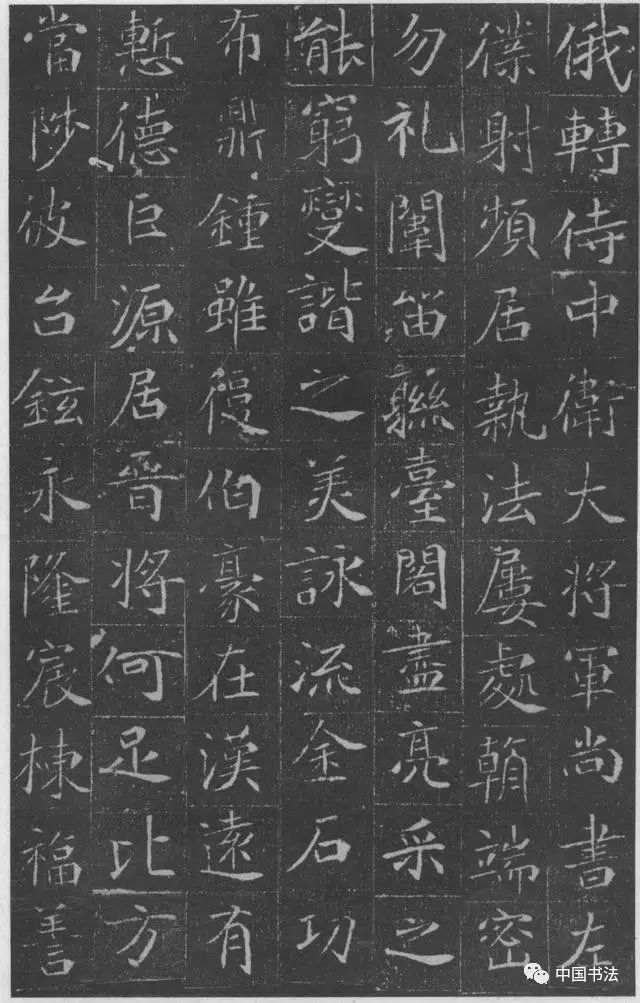 俄轉侍中衛大將軍尚書左
僕射頻居執法屢處朝端密
勿礼闈留聯臺閣盡亮采之
能窮變諧之美詠流金石功
布鼎鍾雖復伯豪在漢遠有
慙德巨源居晉將何足比方
當陟彼台鉉永隆宸棟福善
中国书法